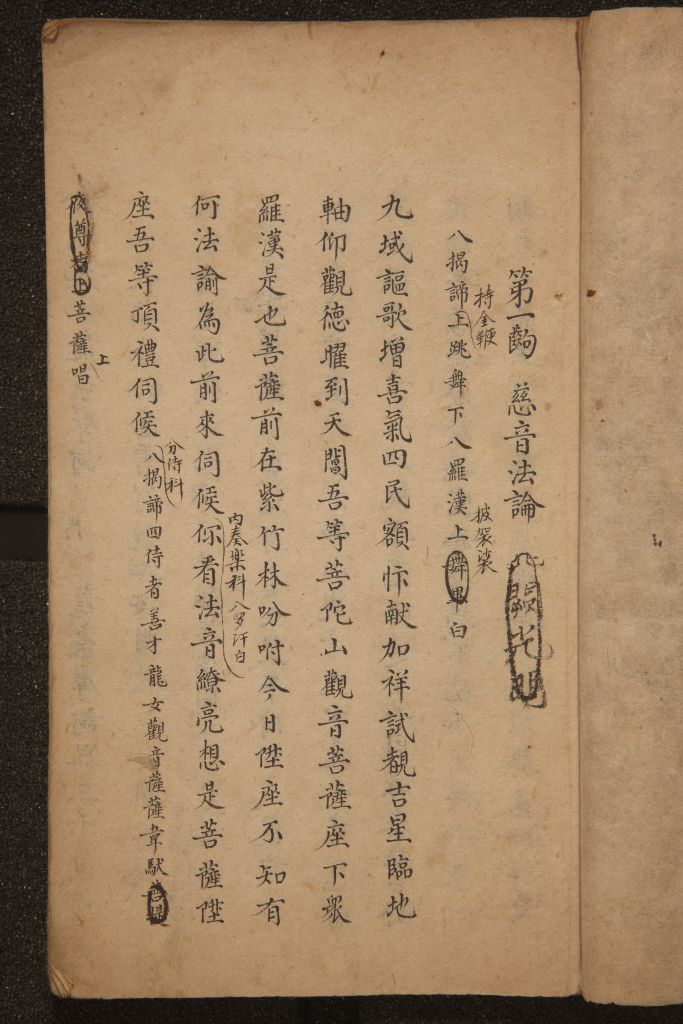 第一齣 慈音法論
持金鞭 披袈裟
八揭諦上跳舞下八羅漢上舞畢白
九域謳歌增喜氣四民額忭献加祥試覩吉星臨地
軸仰觀德曜到天閶吾等菩陀山觀音菩薩座下眾
羅漢是也菩薩前在紫竹林吩咐今日陞座不知有
內奏樂科八罗汗白
何法諭為此前來伺候你看法音繚亮想是菩薩陞
分侍科
座吾等頂禮伺候八揭諦四侍者善才龍女觀音薩薩韋馱
尊者上菩薩唱
上